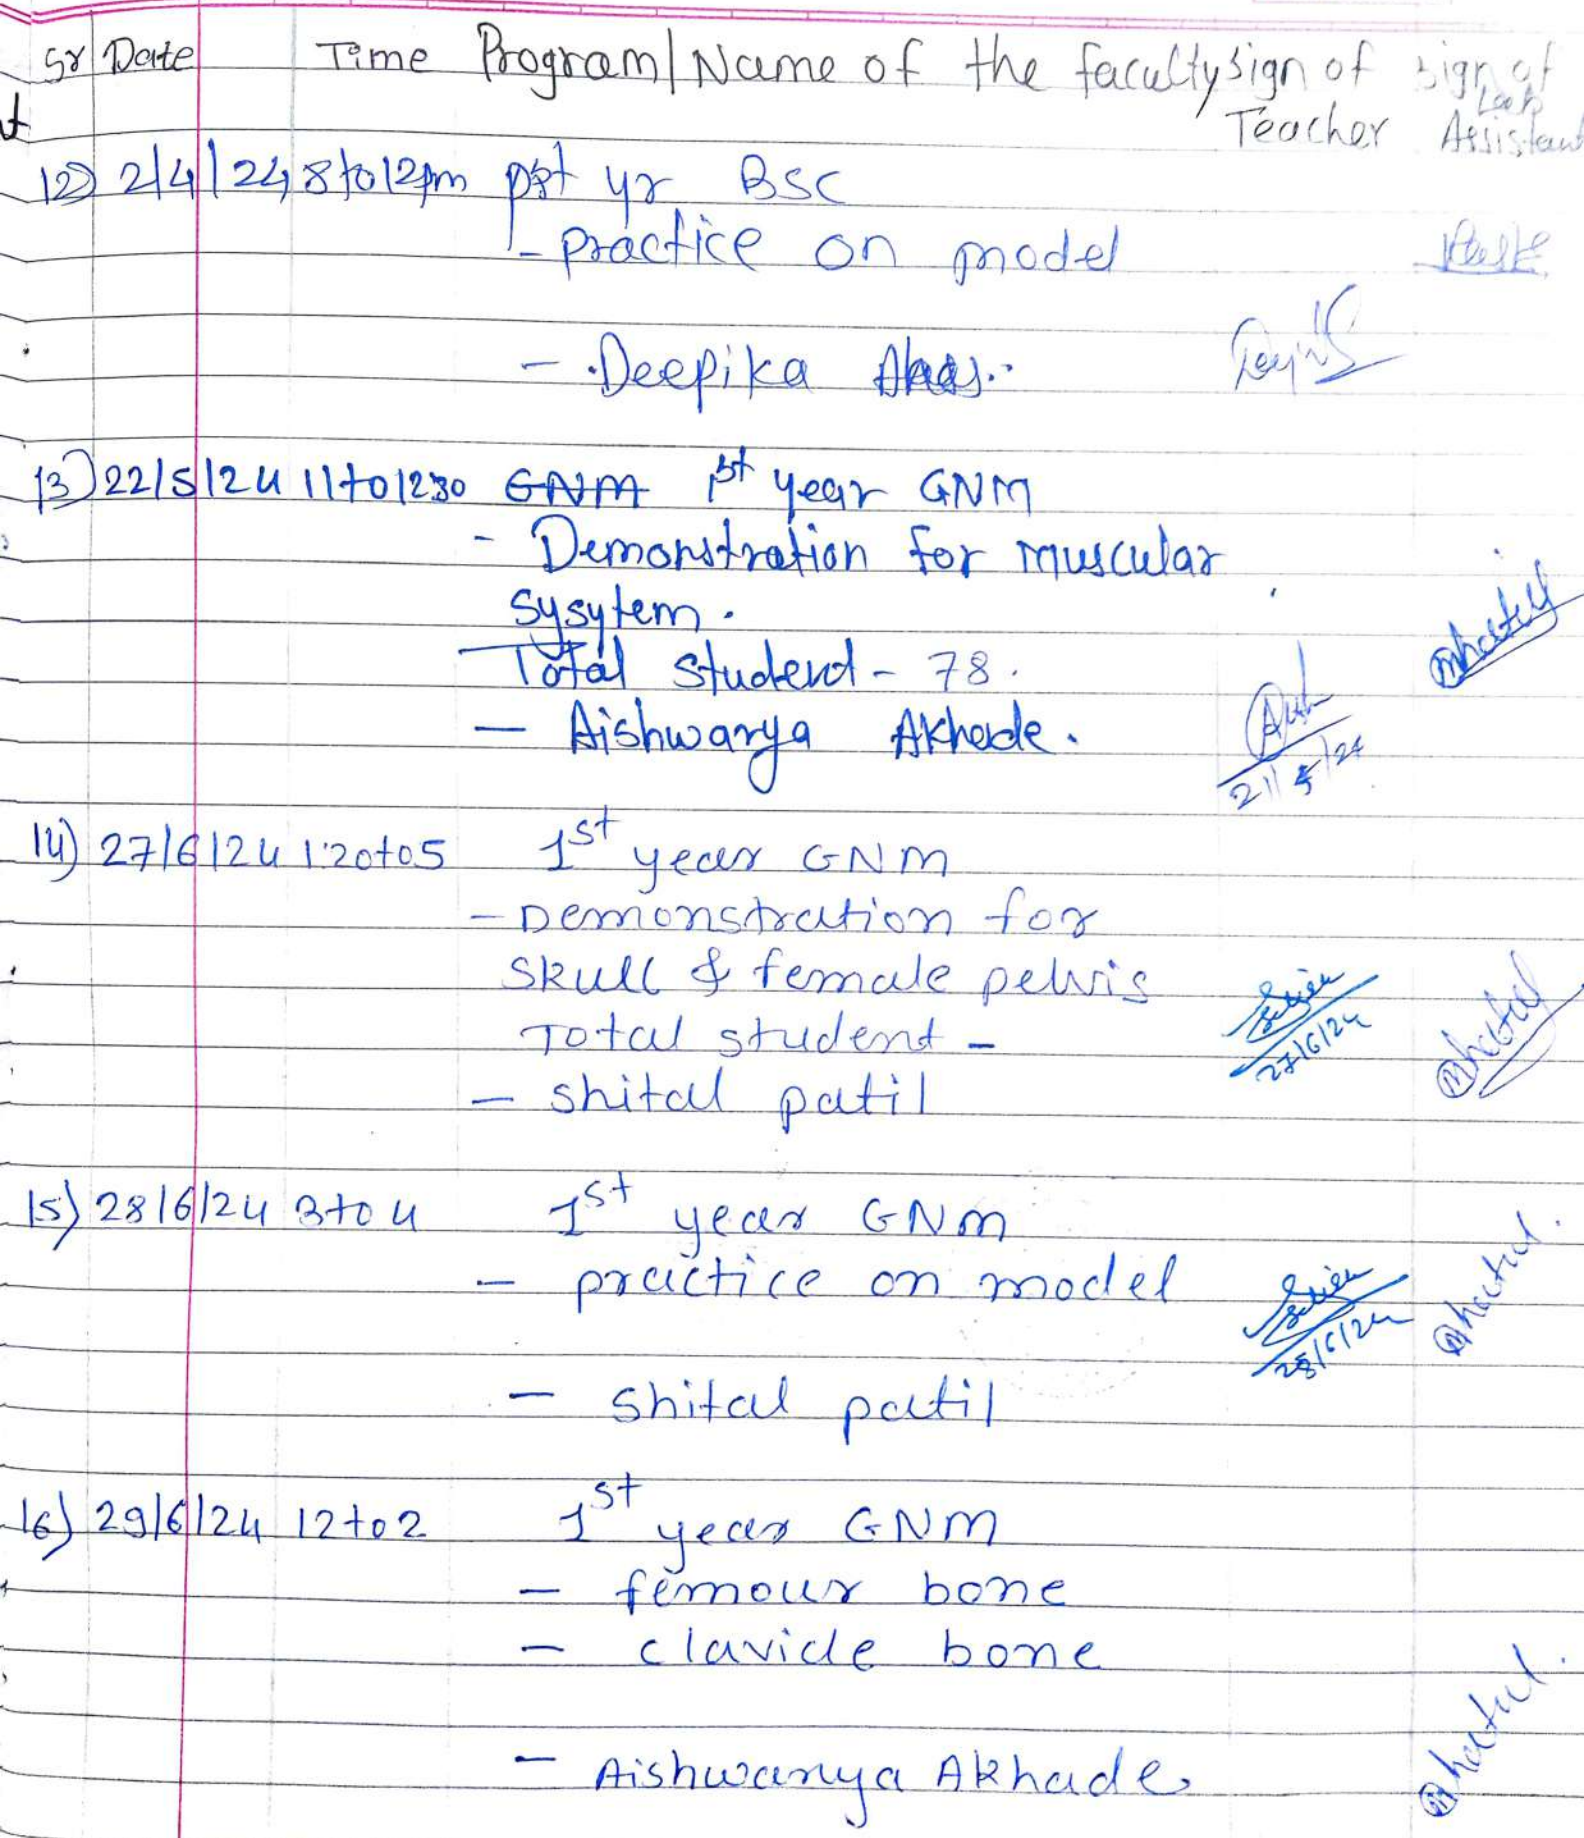 Sr Date Time Program/Name of the faculty Sign of Teacher Sign of Lab Assistant
12) 2/4/24 8 to 12pm Ist yr BSC
- Practice on model
- Deepika
13) 22/5/24 11 to 1230 GNM Ist year GNM
- Demonstration for muscular
sysytem.
Total student - 78.
- Aishwarya Akhade.
21/5/24
14) 27/6/24 1:20 to 5 1st year GNM
- Demonstration for
skull & female pelvis
Total student -
27/6/24
- shital patil
15) 28/6/24 3 to 4 1st year GNM
- practice on model
28/6/24
- shital patil
16) 29/6/24 12 to 2 1st year GNM
- femour bone
- clavicle bone
- Aishwarya Akhade